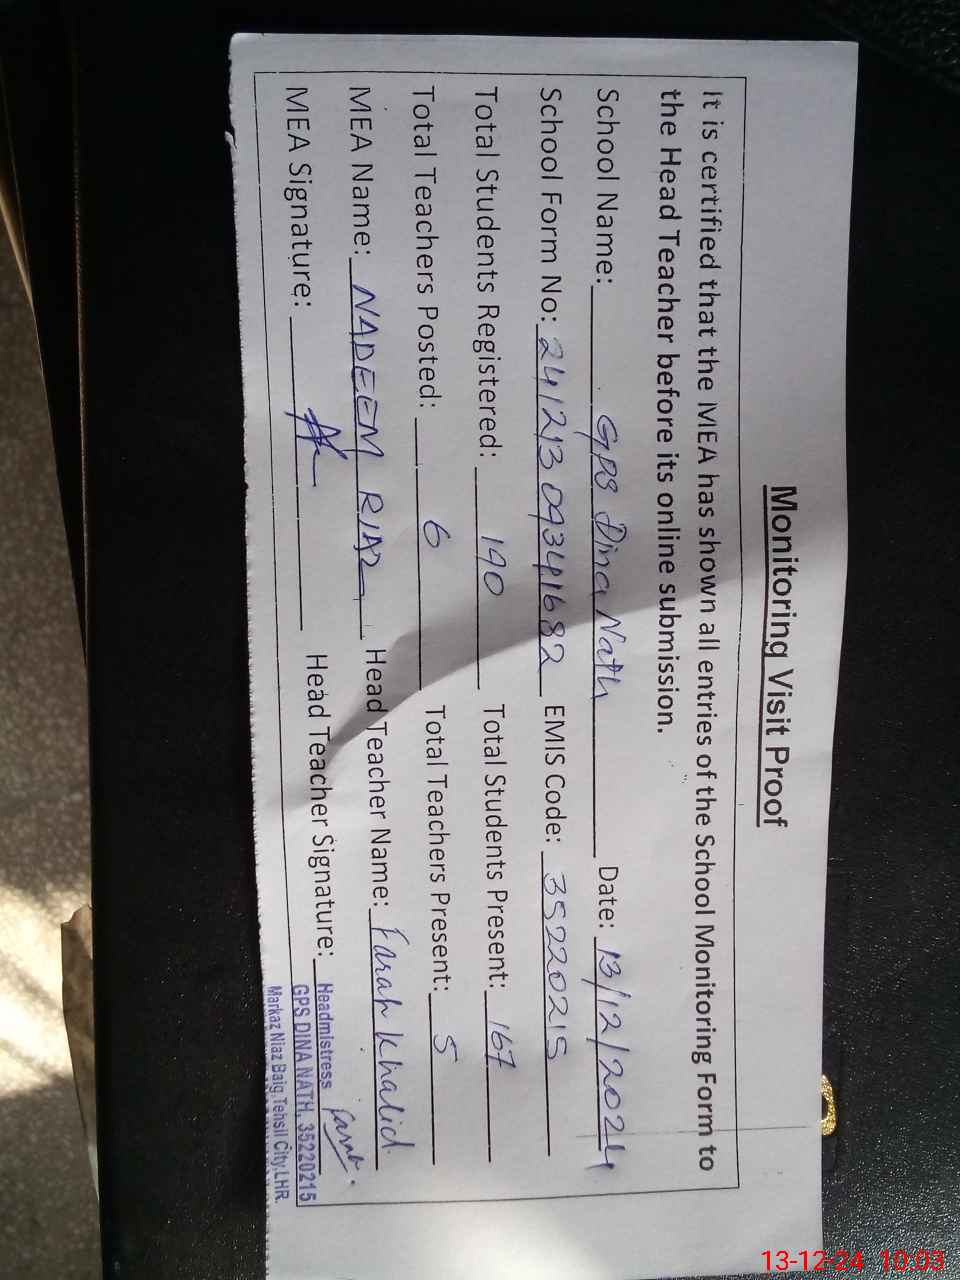 Monitoring Visit Proof
It is certified that the MEA has shown all entries of the School Monitoring Form to
the Head Teacher before its online submission.
School Name: GPS Dina Nath Date: 13/12/2024
School Form No: 241213 09341682 EMIS Code: 35220215
Total Students Registered: 190 Total Students Present: 167
Total Teachers Posted: 6 Total Teachers Present: 5
MEA Name: NADEEM RIAZ Head Teacher Name: Farah Khalid
MEA Signature: Head Teacher Signature: Farah
Headmistress
GPS DINA NATH, 35220215
Markaz Niaz Baig, Tehsil City, LHR.
13-12-24 10:03